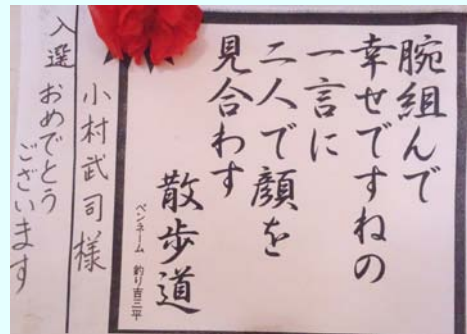 腕組んで
幸せですねの
一言に
二人で顔を
見合わす
散歩道
ペンネーム 釣り吉三平
小村武司様
入選 おめでとう
ございます